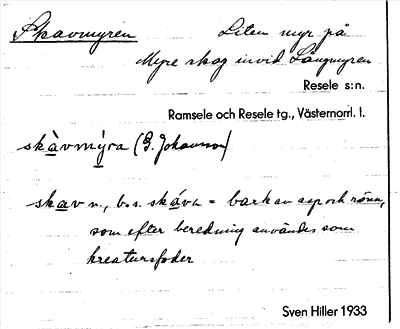 Skavmyren
Liten myr på
Myre skog invid Långmyren
Resele s:n.
Ramsele och Resele tg., Västernorrl. l.
skàvmýra (E. Johanson)
skav n., b. s. skáva = bark av asp och rönn,
som efter beredning användes som
kreatursfoder
Sven Hiller 1933